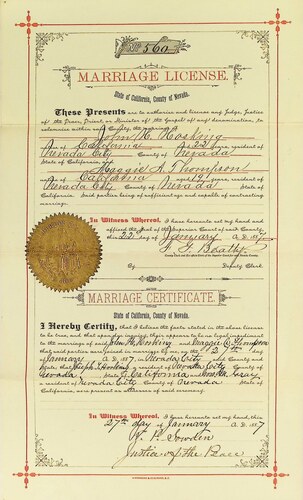 No 560
MARRIAGE LICENSE.
State of California, County of Nevada.
These Presents are to authorize and license any Judge, Justice
of the Peace, Priest, or Minister of the Gospel of any denomination, to
solemnize within said County, the marriage of
John H. Hosking
of California aged 22 years, resident of
Nevada City County of Nevada
State of California, and
Maggie A. Thompson
of California aged 19 years, resident of
Nevada City County of Nevada State of
California. Said parties being of sufficient age and capable of contracting
marriage.
In Witness Whereof, I have hereunto set my hand and
affixed the Seal of the Superior Court of said County
this 22 day of January A. D. 1887
F. G. Beatty
By Deputy Clerk
MARRIAGE CERTIFICATE.
State of California, County of Nevada.
I Hereby Certify, that I believe the facts stated in the above license
to be true, and that upon due inquiry, there appears to be no legal impediment
to the marriage of said John H. Hosking and Maggie Thompson
that said parties were joined in marriage by me, on the 27th day
of January A. D. 1887, in Nevada City County and
State; that Joseph Hosking a resident of Nevada City County of
Nevada State of California and
a resident of Nevada City County of Nevada State of
California, are present as witnesses of said ceremony.
In Witness Whereof, I have hereunto set my hand, this
27th day of January A. D. 1887
Sowden
Justice of the Peace